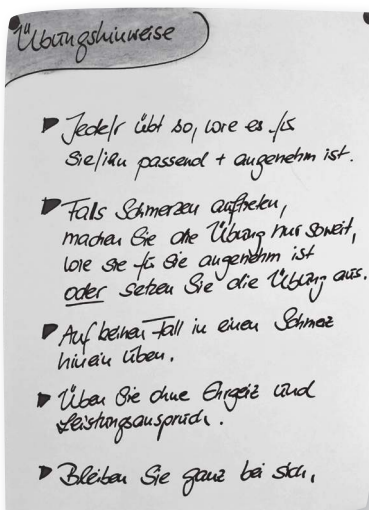 Übungshinweise
Jede/r übt so, wie es für
Sie/ihn passend + angenehm ist.
Falls Schmerzen auftreten,
machen Sie die Übung nur soweit,
wie sie für Sie angenehm ist
oder setzen Sie die Übung aus.
Auf keinen Fall in einen Schmerz
hinein üben.
Üben Sie ohne Ehrgeiz und
Leistungsanspruch.
Bleiben Sie ganz bei sich.